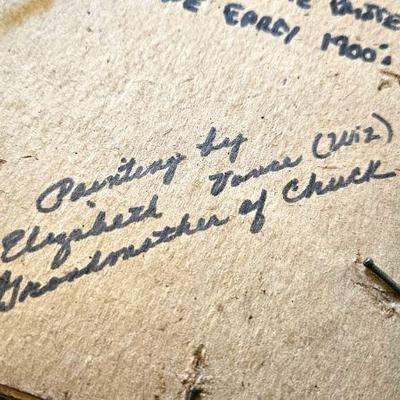 EARly 1900's
Painting by
Elizabeth Vance (Wiz)
Grandmother of Chuck